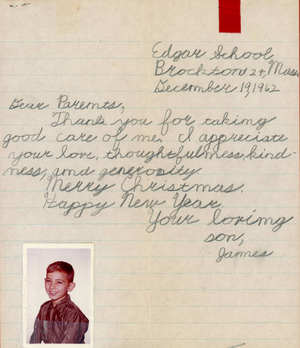 Edgar School
Brockton 24, Mass.
December 19, 1962
Dear Parents,
Thank you for taking
good care of me. I appreciate
your love, thoughtfulness, kind-
ness, and generosity.
Merry Christmas.
Happy New Year
Your loving
son,
James